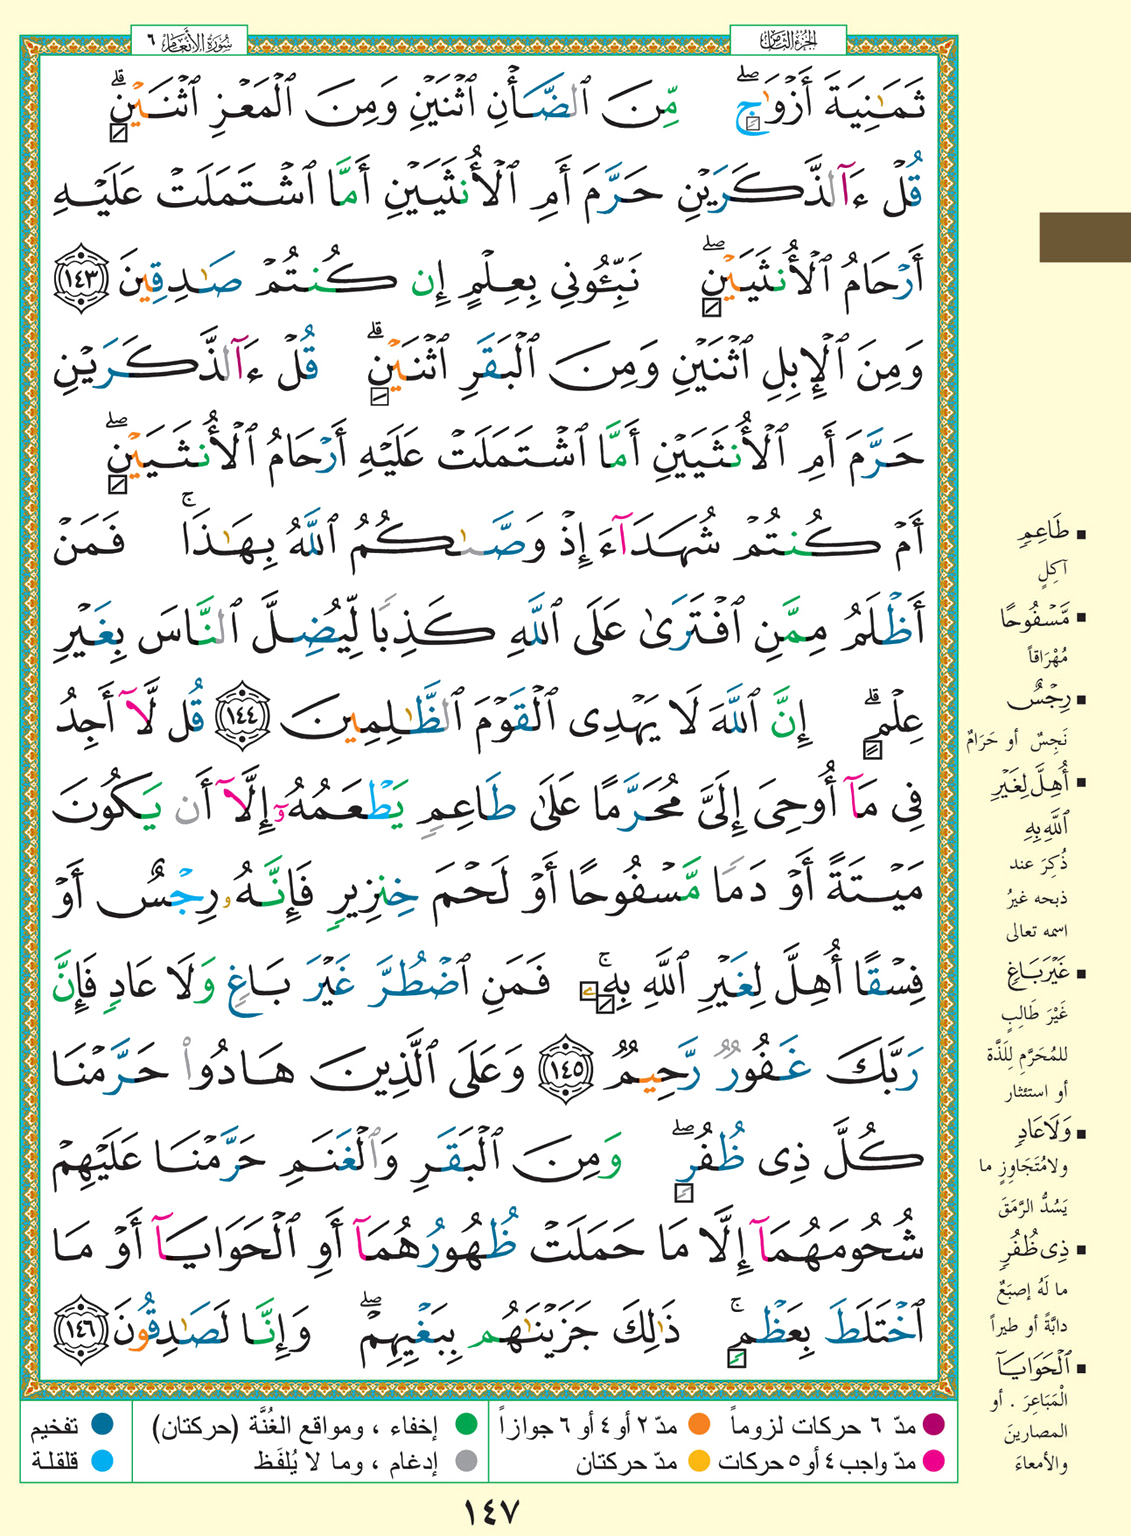 الجزء الثامن
سورة الأنعام ٦
ثَمَٰنِيَةَ أَزْوَٰجٍۖ مِّنَ ٱلضَّأْنِ ٱثْنَيْنِ وَمِنَ ٱلْمَعْزِ ٱثْنَيْنِۗ
قُلْ ءَآلذَّكَرَيْنِ حَرَّمَ أَمِ ٱلْأُنثَيَيْنِ أَمَّا ٱشْتَمَلَتْ عَلَيْهِ
أَرْحَامُ ٱلْأُنثَيَيْنِۖ نَبِّـُٔونِي بِعِلْمٍ إِن كُنتُمْ صَٰدِقِينَ ١٤٣
وَمِنَ ٱلْإِبِلِ ٱثْنَيْنِ وَمِنَ ٱلْبَقَرِ ٱثْنَيْنِۗ قُلْ ءَآلذَّكَرَيْنِ
حَرَّمَ أَمِ ٱلْأُنثَيَيْنِ أَمَّا ٱشْتَمَلَتْ عَلَيْهِ أَرْحَامُ ٱلْأُنثَيَيْنِۖ
أَمْ كُنتُمْ شُهَدَآءَ إِذْ وَصَّىٰكُمُ ٱللَّهُ بِهَٰذَاۚ فَمَنْ
أَظْلَمُ مِمَّنِ ٱفْتَرَىٰ عَلَى ٱللَّهِ كَذِبًا لِّيُضِلَّ ٱلنَّاسَ بِغَيْرِ
عِلْمٍۗ إِنَّ ٱللَّهَ لَا يَهْدِى ٱلْقَوْمَ ٱلظَّٰلِمِينَ ١٤٤ قُل لَّآ أَجِدُ
فِى مَآ أُوحِىَ إِلَىَّ مُحَرَّمًا عَلَىٰ طَاعِمٍ يَطْعَمُهُۥٓ إِلَّآ أَن يَكُونَ
مَيْتَةً أَوْ دَمًا مَّسْفُوحًا أَوْ لَحْمَ خِنزِيرٍ فَإِنَّهُۥ رِجْسٌ أَوْ
فِسْقًا أُهِلَّ لِغَيْرِ ٱللَّهِ بِهِۦۚ فَمَنِ ٱضْطُرَّ غَيْرَ بَاغٍ وَلَا عَادٍ فَإِنَّ
رَبَّكَ غَفُورٌ رَّحِيمٌ ١٤٥ وَعَلَى ٱلَّذِينَ هَادُوا۟ حَرَّمْنَا
كُلَّ ذِى ظُفُرٍۖ وَمِنَ ٱلْبَقَرِ وَٱلْغَنَمِ حَرَّمْنَا عَلَيْهِمْ
شُحُومَهُمَآ إِلَّا مَا حَمَلَتْ ظُهُورُهُمَآ أَوِ ٱلْحَوَايَآ أَوْ مَا
ٱخْتَلَطَ بِعَظْمٍۚ ذَٰلِكَ جَزَيْنَٰهُم بِبَغْيِهِمْۖ وَإِنَّا لَصَٰدِقُونَ ١٤٦
▪ طَاعِمٍ
آكِلٍ
▪ مَّسْفُوحًا
مُهْرَاقاً
▪ رِجْسٌ
نَجِسٌ أو حَرَامٌ
▪ أُهِلَّ لِغَيْرِ
ٱللَّهِ بِهِ
ذُكِرَ عند
ذبحه غيرُ
اسمه تعالى
▪ غَيْرَ بَاغٍ
غَيْرَ طَالِبٍ
للمُحَرَّمِ لِلَذَّة
أو استئثار
▪ وَلَا عَادٍ
ولا مُتَجَاوِزٍ ما
يَسُدُّ الرَّمَقَ
▪ ذِى ظُفُرٍ
ما لَهُ إصبَعٌ
دابَّةً أو طيراً
▪ ٱلْحَوَايَآ
الْمَبَاعِرَ . أو
المصارينَ
والأمعاءَ
مدّ ٦ حركات لزوماً مدّ ٢ أو ٤ أو ٦ جوازاً إخفاء ، ومواقع الغُنَّة (حركتان) تفخيم
مدّ واجب ٤ أو ٥ حركات مدّ حركتان إدغام ، وما لا يُلفَظ قلقلة
١٤٧